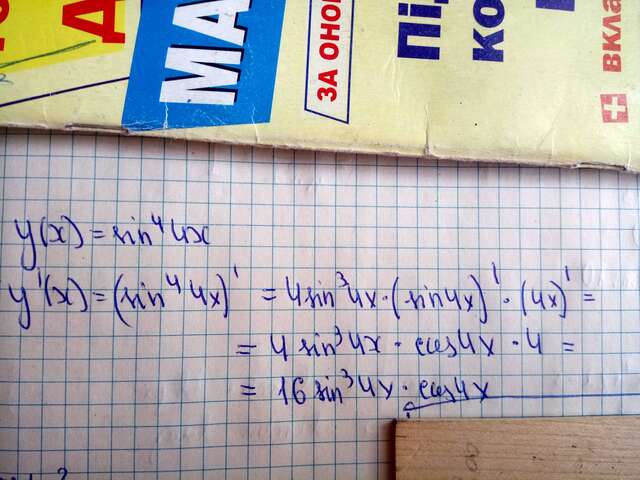 y(x) = sin⁴4x
y'(x) = (sin⁴4x)' = 4sin³4x · (sin4x)' · (4x)' =
= 4 sin³4x · cos4x · 4 =
= 16 sin³4x · cos4x
МА
ЗА ОНО
Під
ко
вкла